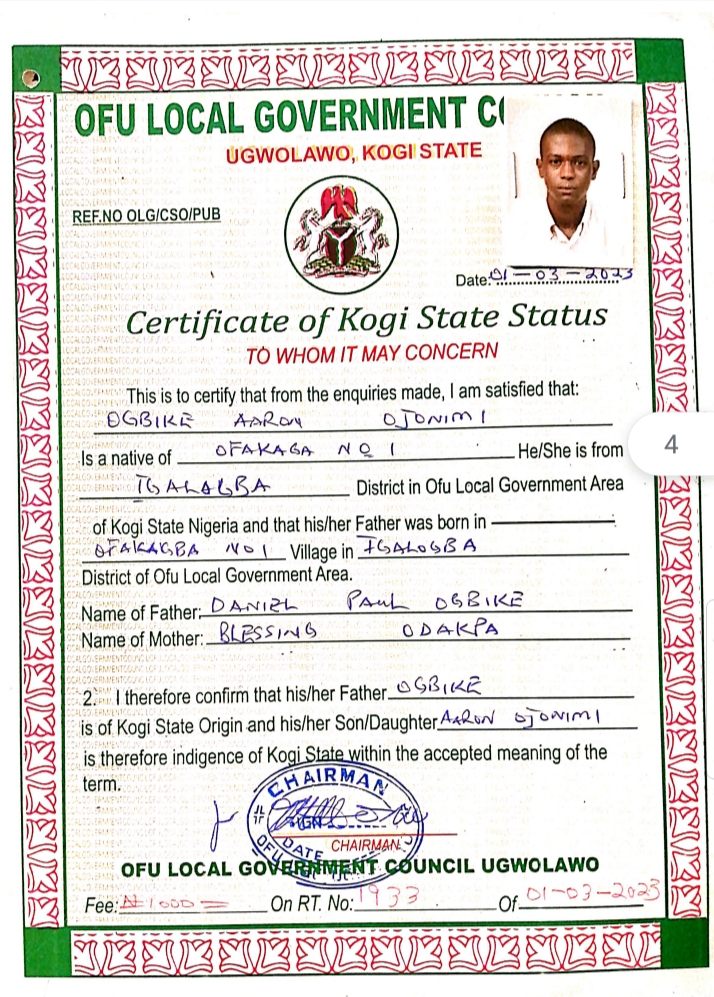 OFU LOCAL GOVERNMENT C
UGWOLAWO, KOGI STATE
REF.NO OLG/CSO/PUB
Date: 01-03-2023
Certificate of Kogi State Status
TO WHOM IT MAY CONCERN
This is to certify that from the enquiries made, I am satisfied that:
OGBIKE AARON OJONIMI
Is a native of OFAKAGA NO 1 He/She is from
IGALAGBA District in Ofu Local Government Area
of Kogi State Nigeria and that his/her Father was born in
OFAKAGBA NO 1 Village in IGALOGBA
District of Ofu Local Government Area.
Name of Father: DANIEL PAUL OGBIKE
Name of Mother: BLESSING ODAKPA
2. I therefore confirm that his/her Father OGBIKE
is of Kogi State Origin and his/her Son/Daughter AARON OJONIMI
is therefore indigence of Kogi State within the accepted meaning of the
term.
CHAIRMAN
SIGN
DATE
CHAIRMAN
OFU LOCAL GOVERNMENT COUNCIL UGWOLAWO
Fee: ₦1000= On RT. No: 1933 Of 01-03-2023
4